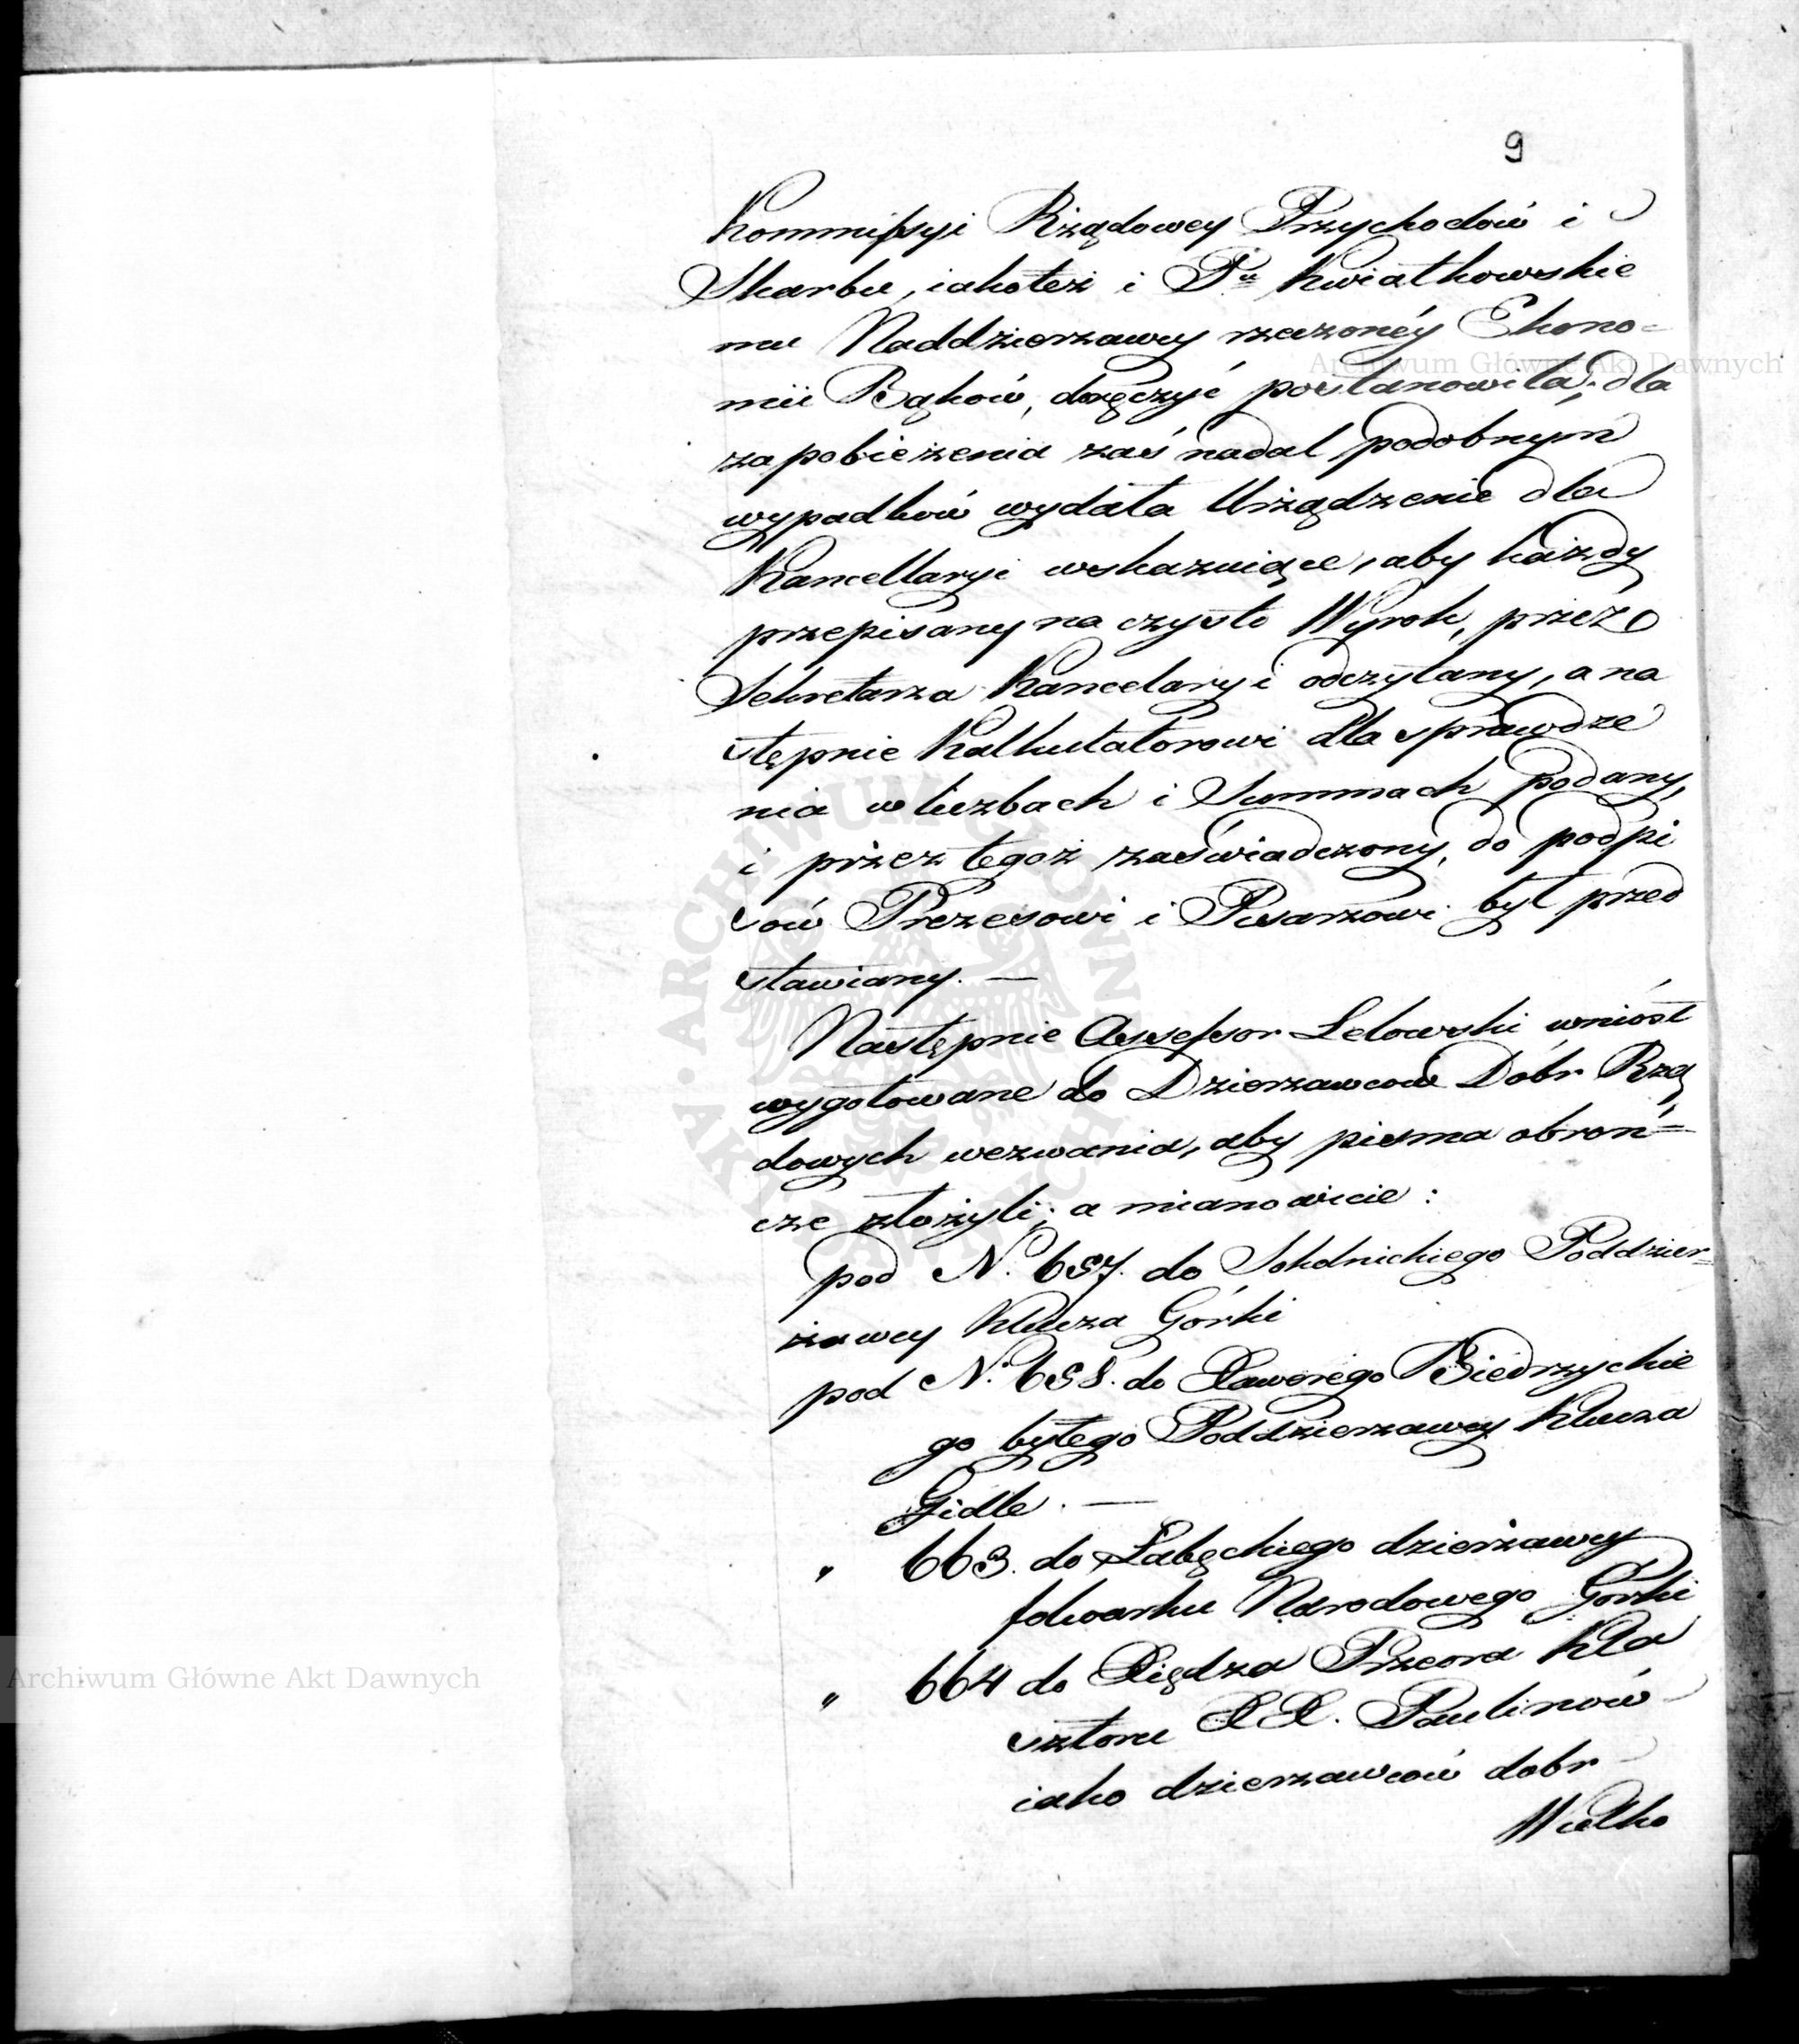 9
Kommissyi Rządowey Przychodów i
Skarbu, iakoteż i Pu Kwiatkowskie
mu Naddzierzawcy rzeczonéy Ekono=
mii Bąków, doręczyć postanowiła; dla
zapobieżenia zaś nadal podobnym
wypadków wydała Urządzenie dla
Kancellaryi wskazuiące, aby każdy
przepisany na czysto Wyrok, przez
Sekretarza Kancelaryi odczytany, a na
stępnie Kalkulatorowi dla sprawdze
nia w liczbach i Summach podany,
i przez tegoż zaświadczony, do podpi
sów Prezesowi i Pisarzowi był przed
stawiany. —
Następnie Assessor Lelowski wniósł
wygotowane do Dzierzawców Dóbr Rzą
dowych wezwania, aby pisma obroń=
cze złożyli; a mianowicie:
pod N. 657. do Sokolnickiego Poddzier=
żawcy Klucza Górki
pod N. 658. do Xawerego Biedrzyckie
go byłego Poddzierzawcy Klucza
Gidle. —
" 663. do Łabęckiego dzierżawcy
folwarku Narodowego Górki
" 664 do Xiędza Przeora Kla
sztoru XX. Paulinów
iako dzierzawców dobr
Wielko
Archiwum Główne Akt Dawnych
Archiwum Główne Akt Dawnych
ARCHIWUM GŁÓWNE AKT DAWNYCH